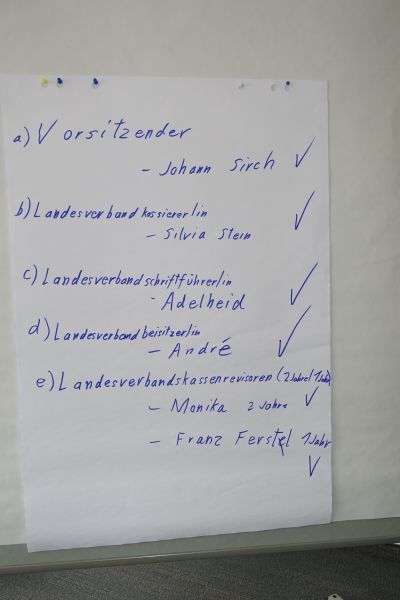 a) Vorsitzender
- Johann Sirch ✓
b) Landesverbandkassierer/in ✓
- Silvia Stein
c) Landesverbandschriftführer/in
- Adelheid ✓
d) Landesverbandbeisitzer/in
- André ✓
e) Landesverbandskassenrevisoren (2 Jahre/1Jahr)
- Monika 2 Jahre ✓
- Franz Ferstl 1 Jahr
✓